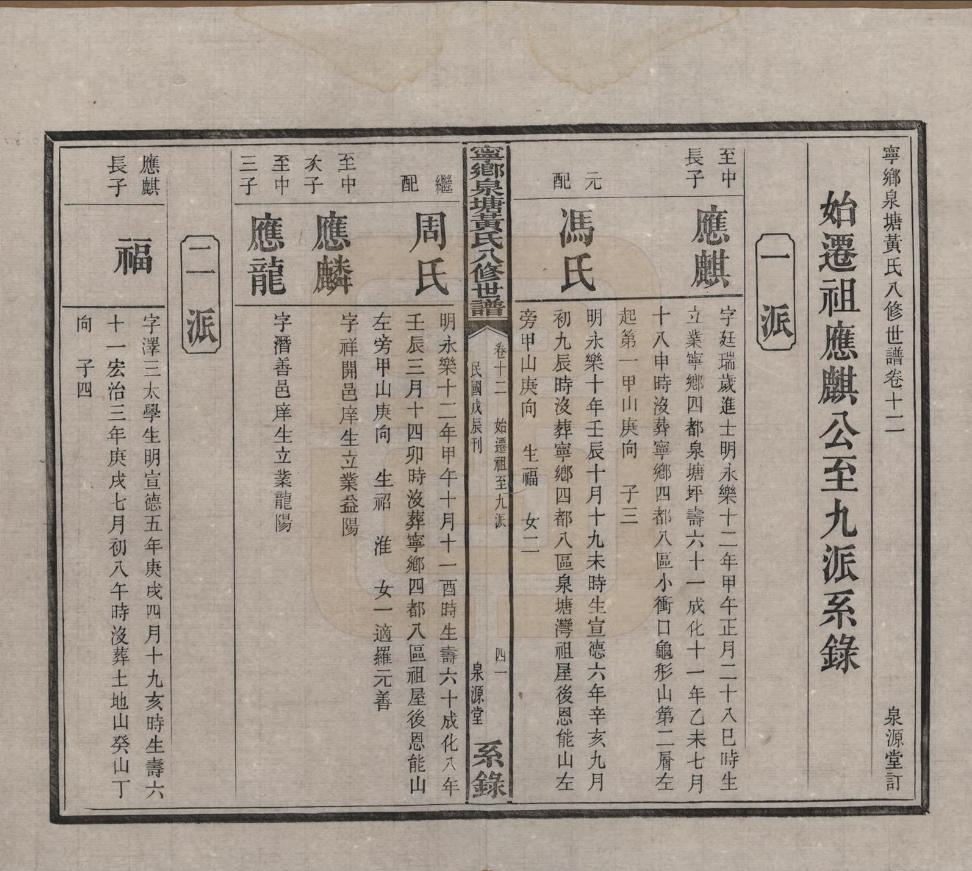 寧鄉泉塘黃氏八修世譜卷十二
泉源堂訂
始遷祖應麒公至九派系錄
一派
至中
長子
應麒
字廷瑞歲進士明永樂十二年甲午正月二十八巳時生
立業寧鄉四都泉塘坪壽六十一成化十一年乙未七月
十八申時沒葬寧鄉四都八區小衝口龜形山第二層左
起第一甲山庚向 子三
元
配
馮氏
明永樂十年壬辰十月十九未時生宣德六年辛亥九月
初九辰時沒葬寧鄉四都八區泉塘灣祖屋後恩能山左
旁甲山庚向 生福 女二
寧鄉泉塘黃氏八修世譜
卷十二 始遷祖至九派
民國戊辰刊
四一
泉源堂
系錄
繼
配
周氏
明永樂十二年甲午十月十一酉時生壽六十成化八年
壬辰三月十四卯時沒葬寧鄉四都八區祖屋後恩能山
左旁甲山庚向 生紹 淮 女一適羅元善
至中
次子
應麟
字祥開邑庠生立業益陽
至中
三子
應龍
字潛善邑庠生立業龍陽
二派
應麒
長子
福
字澤三太學生明宣德五年庚戌四月十九亥時生壽六
十一宏治三年庚戌七月初八午時沒葬土地山癸山丁
向 子四